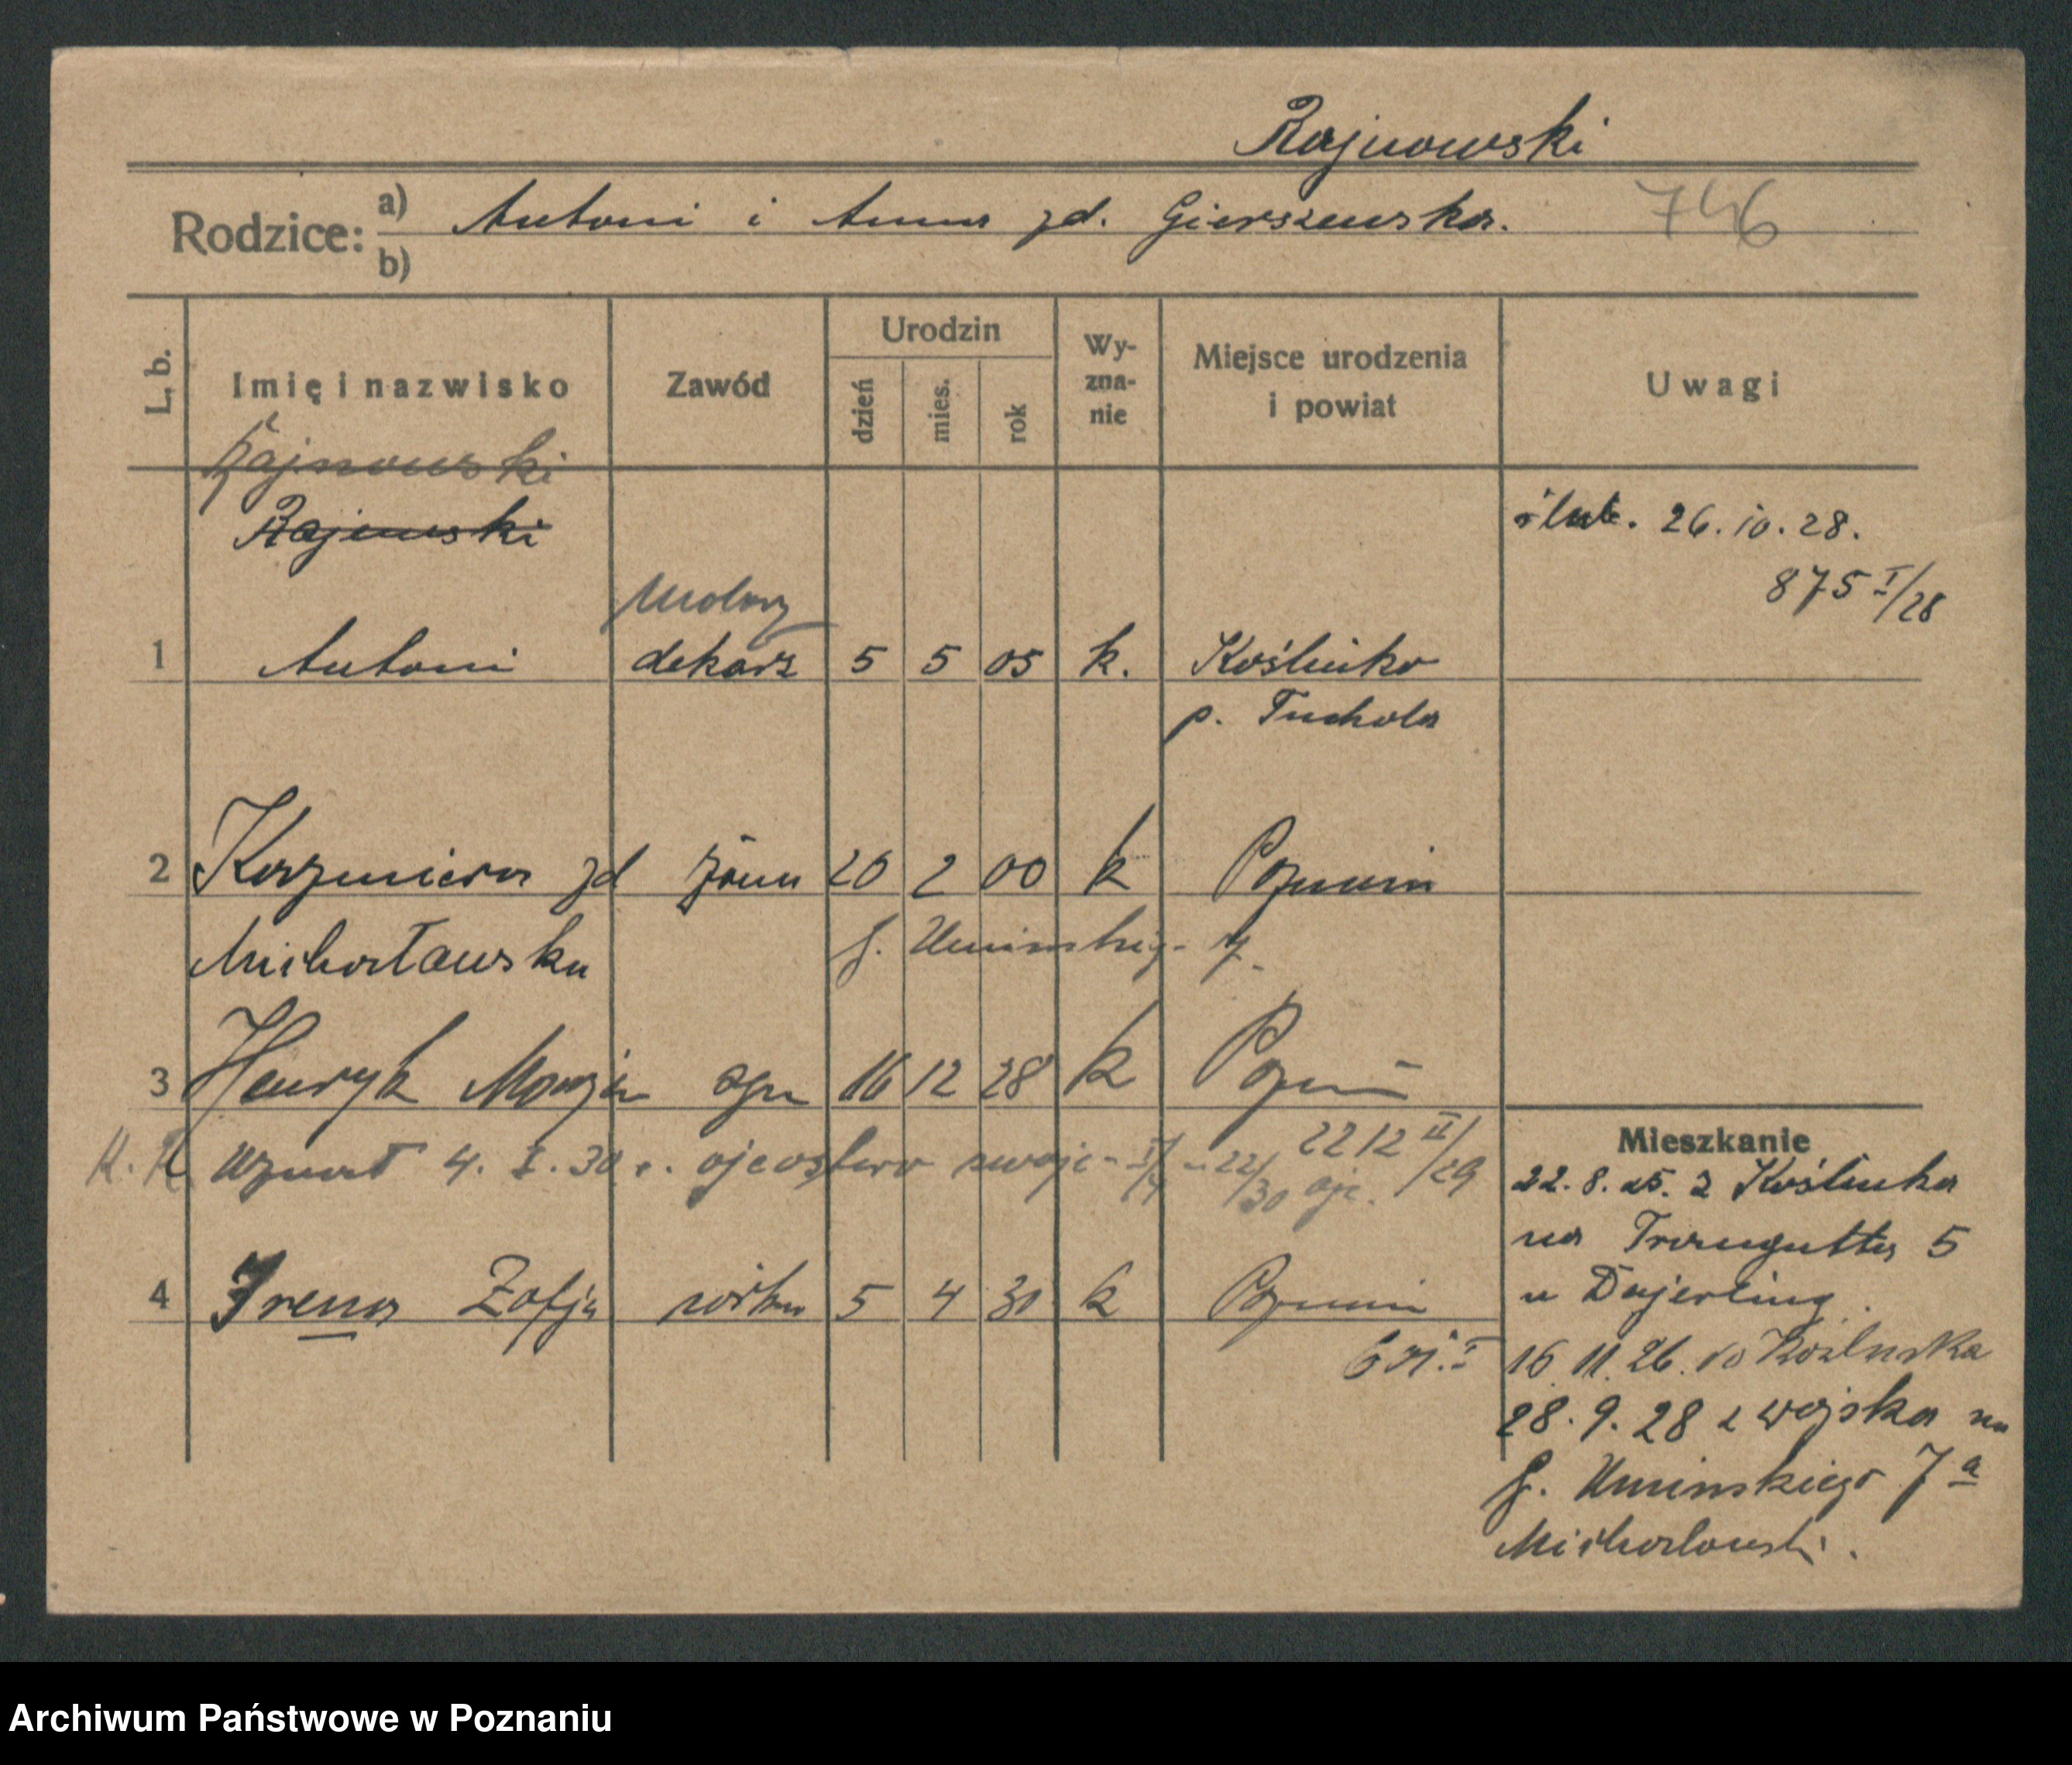 Rajnowski
Rodzice: a) Antoni i Anna zd. Gierszewska. 746
b)
L. b. Imię i nazwisko Zawód Urodzin dzień mies. rok Wyznanie Miejsce urodzenia i powiat Uwagi
Rajnowski
Rajewski
ślub. 26.10.28.
875 I/28
Molarz
1 Antoni dekarz 5 5 05 k. Koślinka
p. Tuchola
2 Kazmiera zd żona 20 2 00 k Poznań
Michałowska G. Umińskieg- 7
3 Henryk Marjan syn 16 12 28 k Pozn
K. K. uznał 4. I. 30 r. ojcostwo swoje 22/30 ojc. 2212 II/29
4 Irena Zofja córka 5 4 30 k Poznań
Mieszkanie
22. 8. 25. z Koślinka
na Traugutta 5
u Bajerling.
16 11. 26. do Koślinka
28. 9. 28 z wojska na
G. Umińskiego 7a
Michałowski.
Archiwum Państwowe w Poznaniu